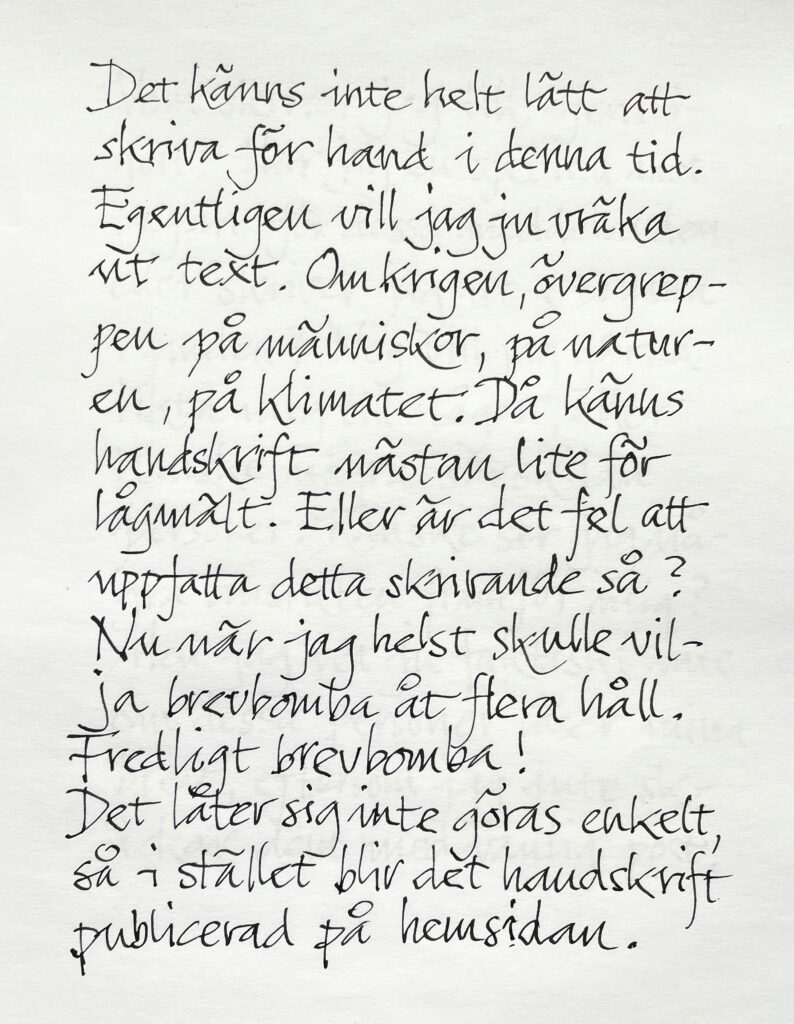 Det känns inte helt lätt att
skriva för hand i denna tid.
Egentligen vill jag ju vräka
ut text. Om krigen, övergrep-
pen på människor, på natur-
en, på klimatet. Då känns
handskrift nästan lite för
lågmält. Eller är det fel att
uppfatta detta skrivande så?
Nu när jag helst skulle vil-
ja brevbomba åt flera håll.
Fredligt brevbomba!
Det låter sig inte göras enkelt,
så i stället blir det handskrift
publicerad på hemsidan.